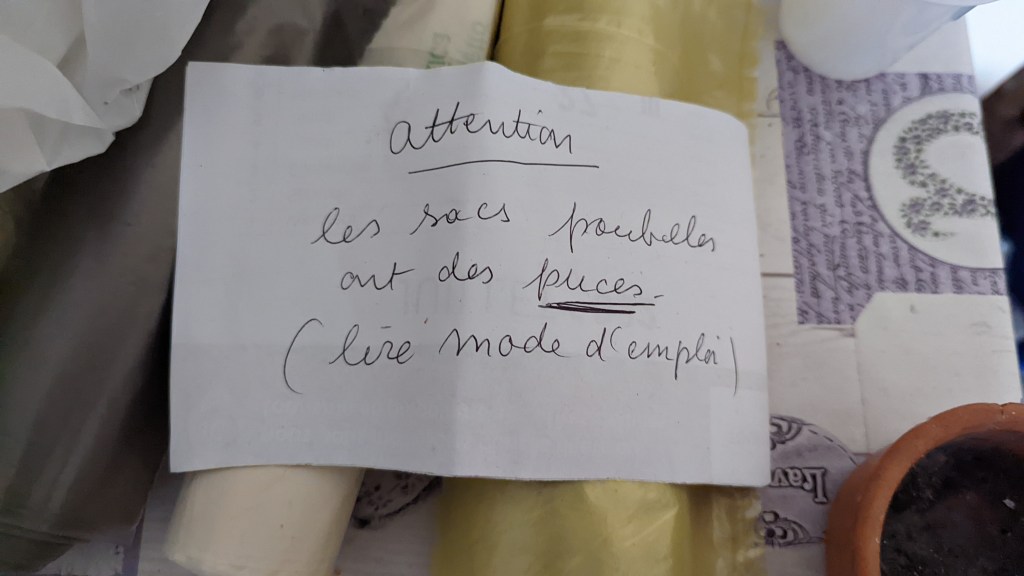 attention
les sacs poubelles
ont des puces.
(lire mode d'emploi)